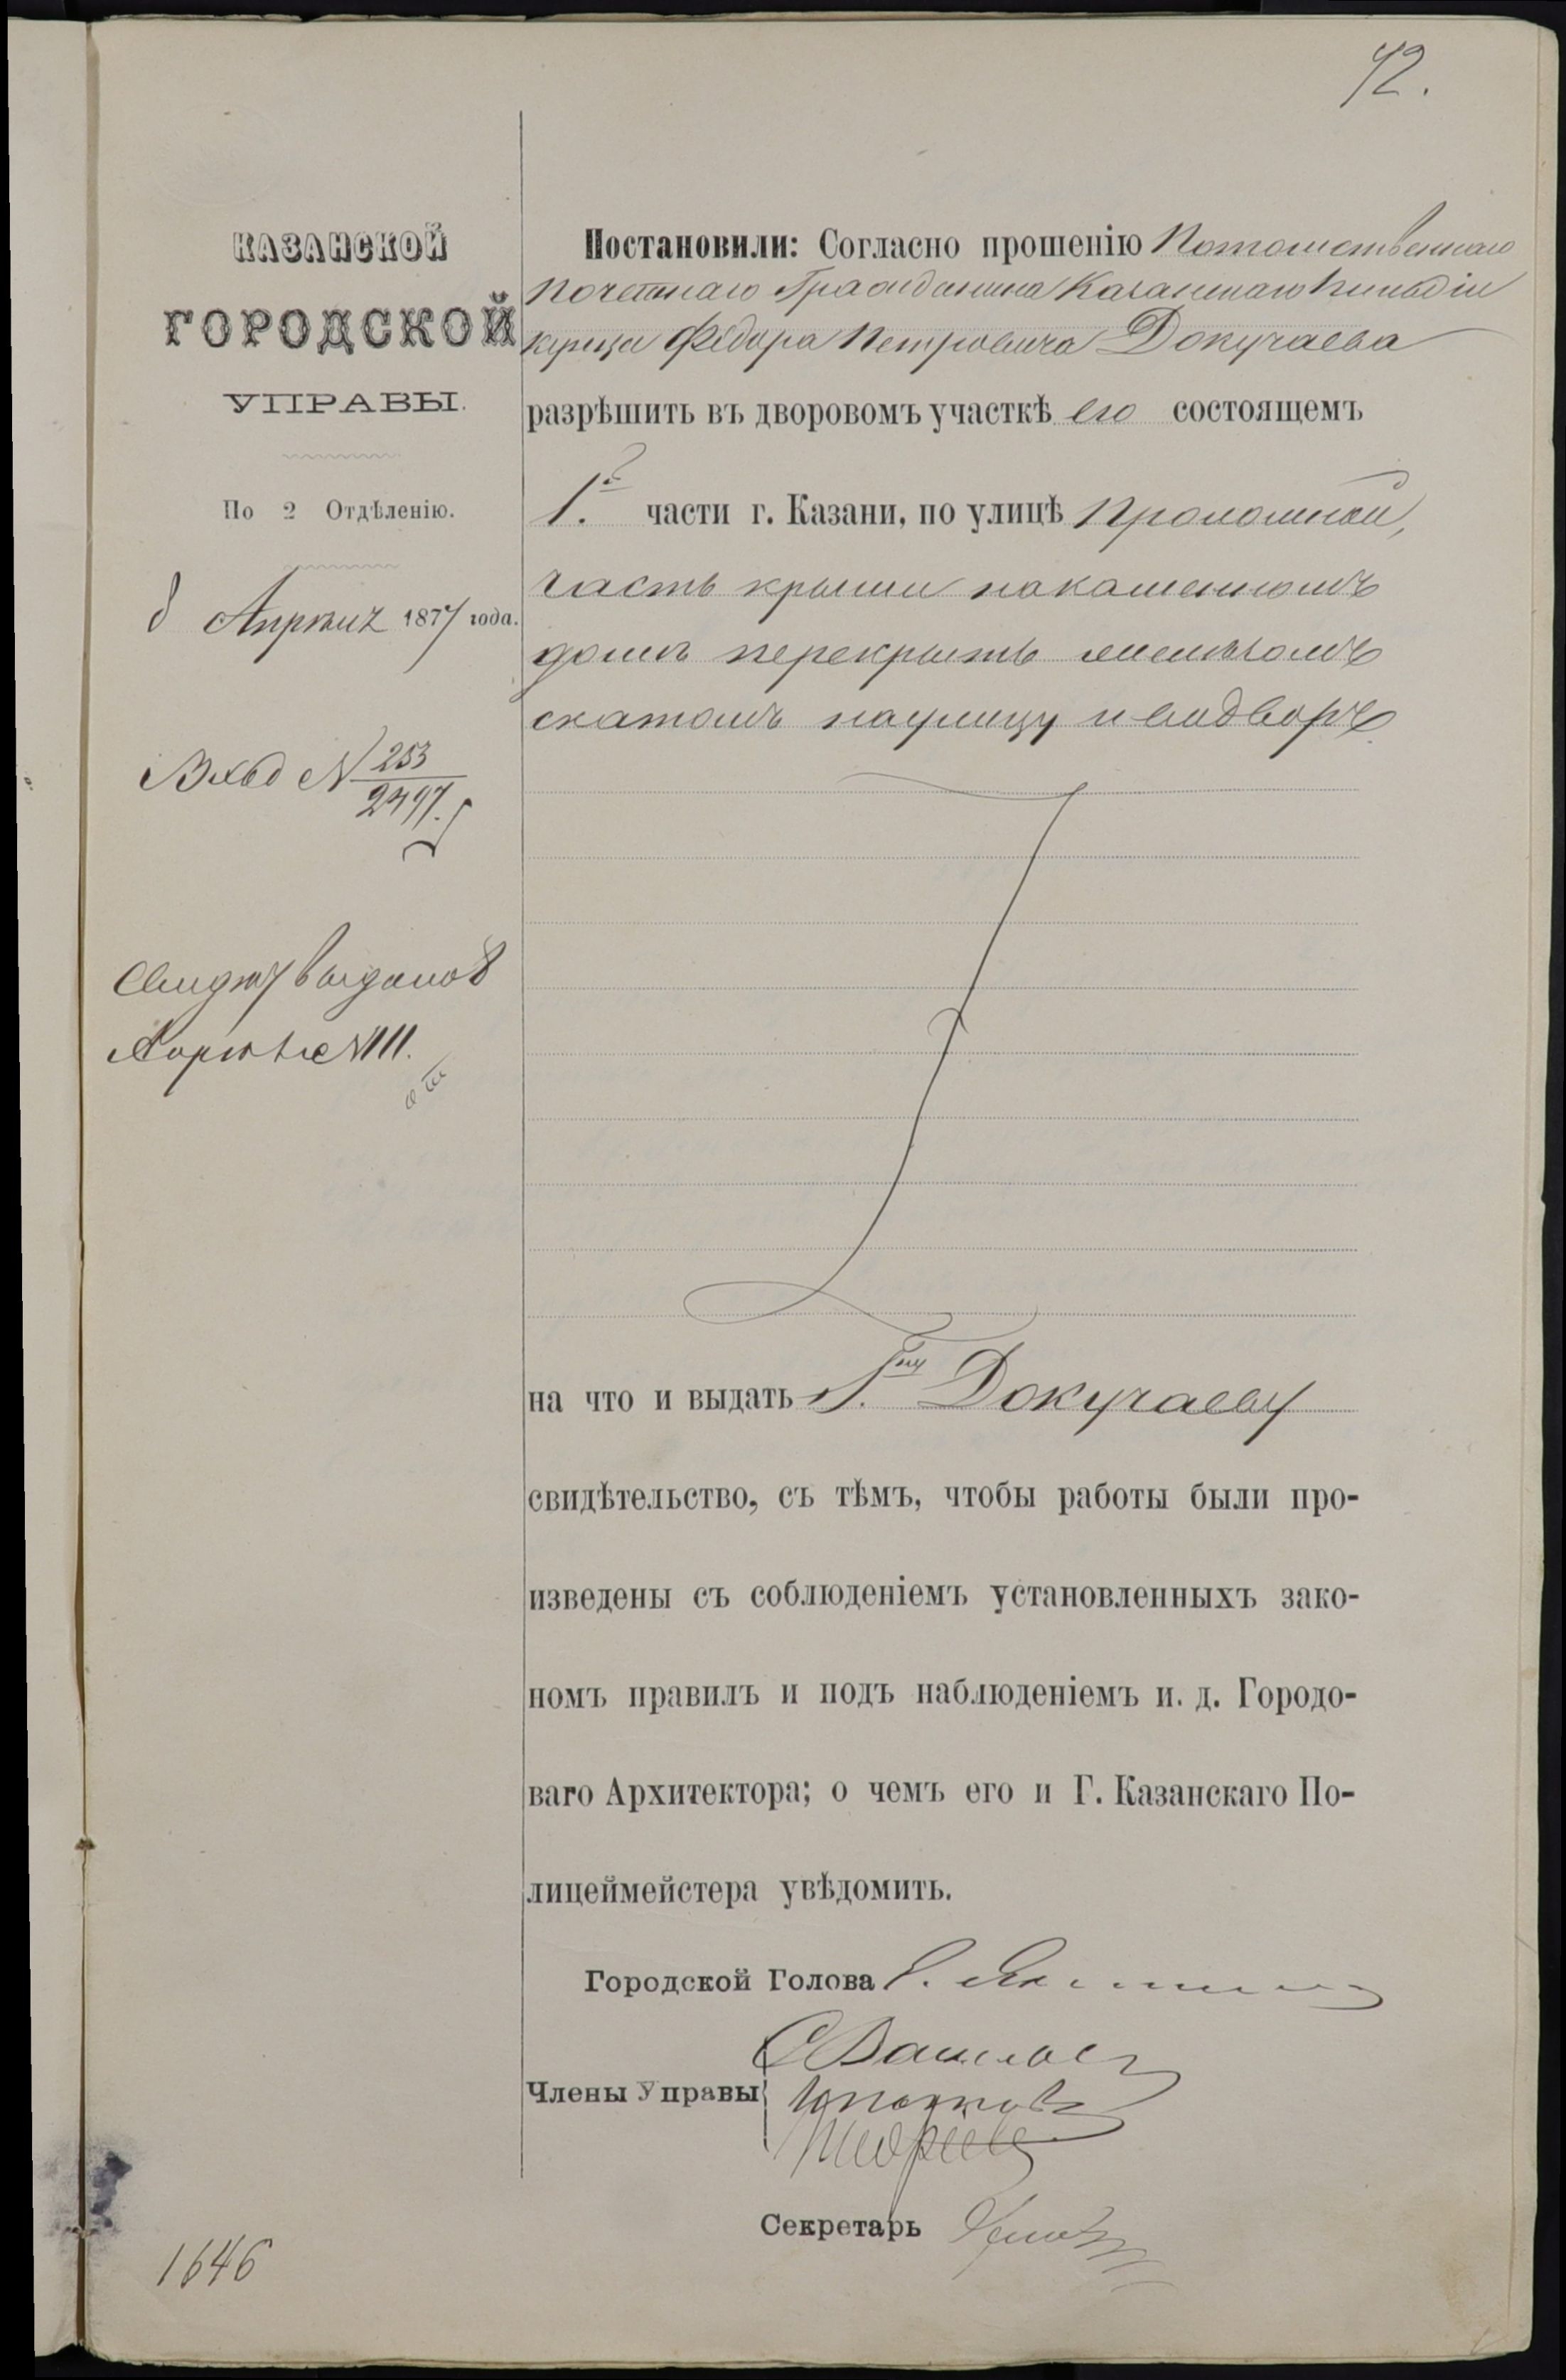 42.
КАЗАНСКОЙ
ГОРОДСКОЙ
УПРАВЫ.
По 2 Отдѣленію.
8 Апрѣля 1877 года.
Вход № 253
2497.
Свидѣт выдано 8
Апрѣля № 111.
Постановили: Согласно прошенію Потомственнаго
Почетнаго Гражданина Казанскаго Гильдіи
купца Федора Петровича Докучаева
разрѣшить въ дворовомъ участкѣ его состоящемъ
1.й части г. Казани, по улицѣ Проломной,
часть крыши на каменномъ
домѣ перекрыть желѣзомъ
скатомъ на улицу и во дворъ
на что и выдать Г.ну Докучаеву
свидѣтельство, съ тѣмъ, чтобы работы были про-
изведены съ соблюденіемъ установленныхъ зако-
номъ правилъ и подъ наблюденіемъ и. д. Городо-
ваго Архитектора; о чемъ его и Г. Казанскаго По-
лицеймейстера увѣдомить.
Городской Голова
Члены Управы
Секретарь
1646